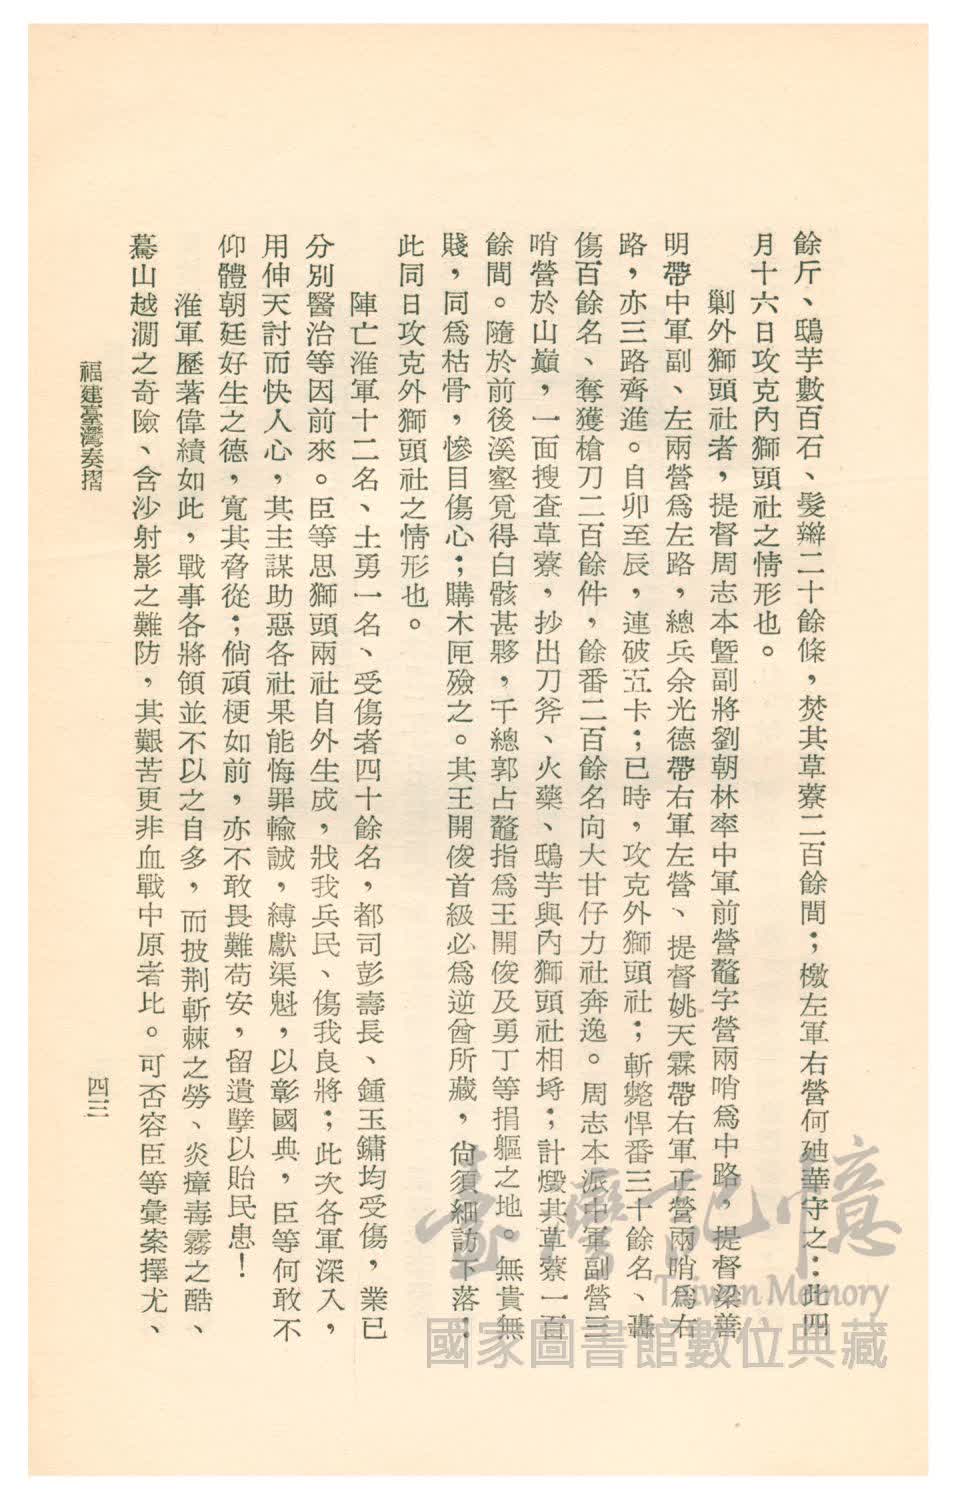 餘斤、鴟芋數百石、髮辮二十餘條，焚其草藔二百餘間；檄左軍右營何廸華守之：此四
月十六日攻克內獅頭社之情形也。
剿外獅頭社者，提督周志本曁副將劉朝林率中軍前營鼇字營兩哨爲中路，提督梁善
明帶中軍副、左兩營爲左路，總兵余光德帶右軍左營、提督姚天霖帶右軍正營兩哨爲右
路，亦三路齊進。自卯至辰，連破五卡；巳時，攻克外獅頭社；斬斃悍番三十餘名、轟
傷百餘名、奪獲槍刀二百餘件，餘番二百餘名向大甘仔力社奔逸。周志本派中軍副營三
哨營於山巓，一面搜查草藔，抄出刀斧、火藥、鴟芋與內獅頭社相埓；計燬其草藔一百
餘間。隨於前後溪壑覓得白骸甚夥，千總郭占鼇指爲王開俊及勇丁等捐軀之地。無貴無
賤，同爲枯骨，慘目傷心；購木匣殮之。其王開俊首級必爲逆酋所藏，尙須細訪下落：
此同日攻克外獅頭社之情形也。
陣亡淮軍十二名、土勇一名、受傷者四十餘名，都司彭壽長、鍾玉鏞均受傷，業已
分別醫治等因前來。臣等思獅頭兩社自外生成，戕我兵民、傷我良將；此次各軍深入，
用伸天討而快人心，其主謀助惡各社果能悔罪輸誠，縛獻渠魁，以彰國典，臣等何敢不
仰體朝廷好生之德，寬其脅從；倘頑梗如前，亦不敢畏難苟安，留遺孽以貽民患！
淮軍歷著偉績如此，戰事各將領並不以之自多，而披荆斬棘之勞、炎瘴毒霧之酷、
驀山越澗之奇險、含沙射影之難防，其艱苦更非血戰中原者比。可否容臣等彙案擇尤、
福建臺灣奏摺
四三
臺灣記憶
Taiwan Memory
國家圖書館數位典藏